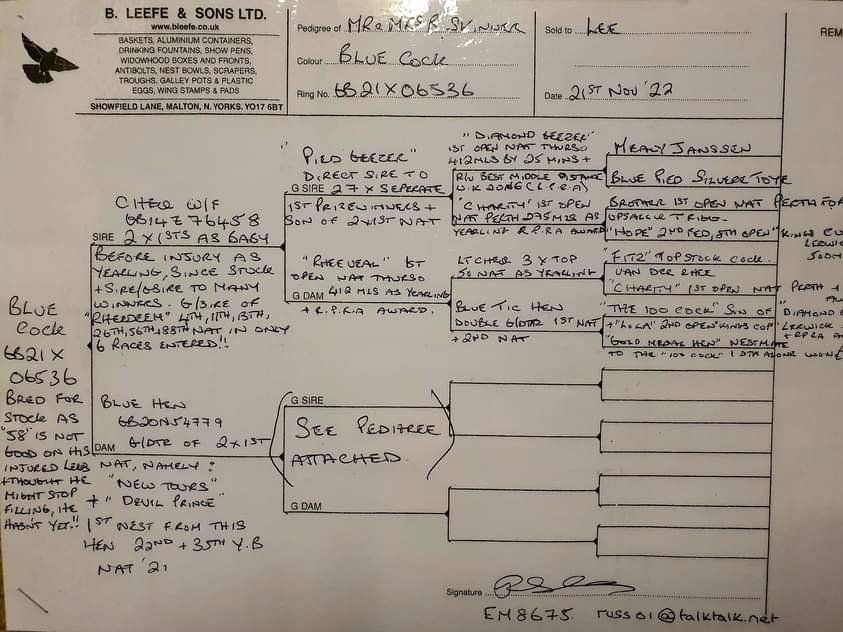 B. LEEFE & SONS LTD.
www.bleefe.co.uk
BASKETS, ALUMINIUM CONTAINERS,
DRINKING FOUNTAINS, SHOW PENS,
WIDOWHOOD BOXES AND FRONTS,
ANTIBOLTS, NEST BOWLS, SCRAPERS,
TROUGHS, GALLEY POTS & PLASTIC
EGGS, WING STAMPS & PADS
SHOWFIELD LANE, MALTON, N. YORKS. YO17 6BT
Pedigree of MR & MRS R. SKINNER
Colour BLUE COCK
Ring No. GB21X06536
Sold to LEE
Date 21ST NOV '22
REM
BLUE
COCK
GB21X
06536
BRED FOR
STOCK AS
"58" IS NOT
GOOD ON HIS
INJURED LEGS
+ THOUGHT HE
MIGHT STOP
FILLING, HE
HASN'T YET!!
CHEQ W/F
GB14Z76458
SIRE 2 X 1STS AS BABY
BEFORE INJURY AS
YEARLING, SINCE STOCK
+ SIRE/GSIRE TO MANY
WINNERS. G/SIRE OF
"RHEDEEM" 4TH, 11TH, 13TH,
26TH, 56TH, 88TH NAT IN ONLY
6 RACES ENTERED!!
BLUE HEN
GB20N54779
DAM G/DTR OF 2 X 1ST
NAT, NAMELY:
"NEW TOURS"
+ "DEVIL PRINCE"
1ST NEST FROM THIS
HEN 22ND + 35TH Y.B
NAT '21
"PIED GEEZER"
DIRECT SIRE TO
G SIRE 27 X SEPERATE
1ST PRIZEWINNERS +
SON OF 2 X 1ST NAT
"RHEEVEAL" 1ST
OPEN NAT THURSO
G DAM 412 MLS AS YEARLING
+ R.P.R.A AWARD.
G SIRE
SEE PEDITREE
ATTACHED.
G DAM
"DIAMOND GEEZER"
1ST OPEN NAT THURSO
412MLS BY 25 MINS +
R/U BEST MIDDLE DISTANCE
U.K 2016 (R.P.R.A)
"CHARITY" 1ST OPEN
NAT PERTH 275MLS AS
YEARLING R.P.R.A AWARD
LT CHEQ 3 X TOP
50 NAT AS YEARLING
BLUE TIC HEN
DOUBLE G/DTR 1ST NAT
+ 2ND NAT
MEALY JANSSEN
BLUE PIED SILVERE TOYE
BROTHER 1ST OPEN NAT PERTH FOR
UPSALL + TRIGG.
"HOPE" 2ND FED, 8TH OPEN "KINGS CU
LERWICK
500M
"FITZ" TOP STOCK COCK.
VAN DER RHEE
"CHARITY" 1ST OPEN NAT PERTH +
"THE 100 COCK" SON OF "DIAMOND G
+ "LOLA" 2ND OPEN "KINGS CUP" LERWICK
+ RPRA A
"GOLD MEDAL HEN" NESTMATE
TO THE "100 COCK" 1 DTR ALONE WON
Signature
EM8675. russ01@talktalk.net